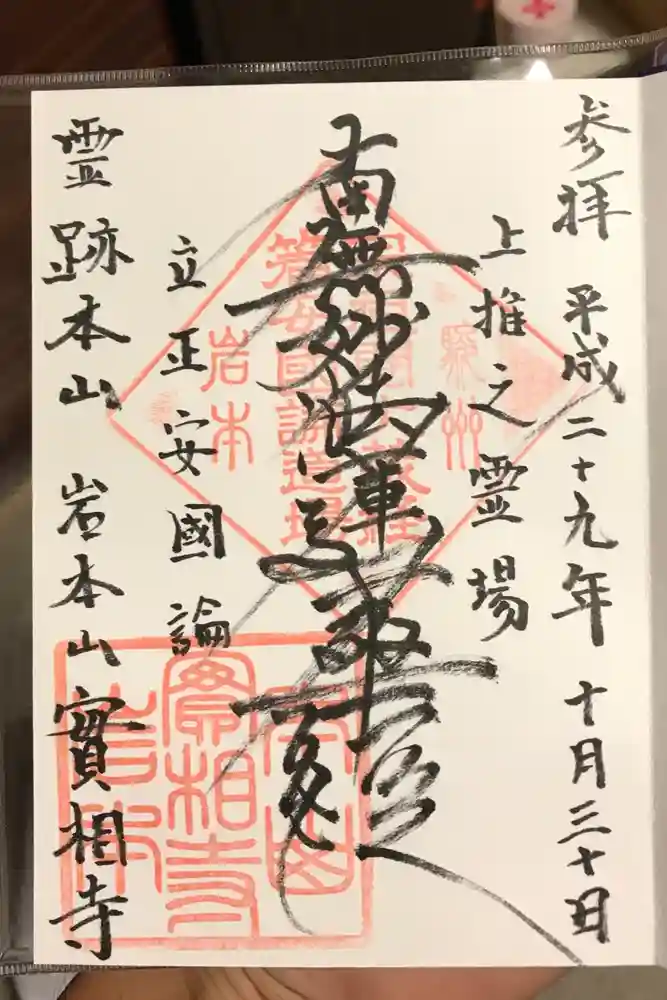 参拝 平成二十九年 十月三十日
上推之霊場
南無妙法蓮華経
立正安國論
霊跡本山 岩本山 實相寺
駿州
岩本
實相寺